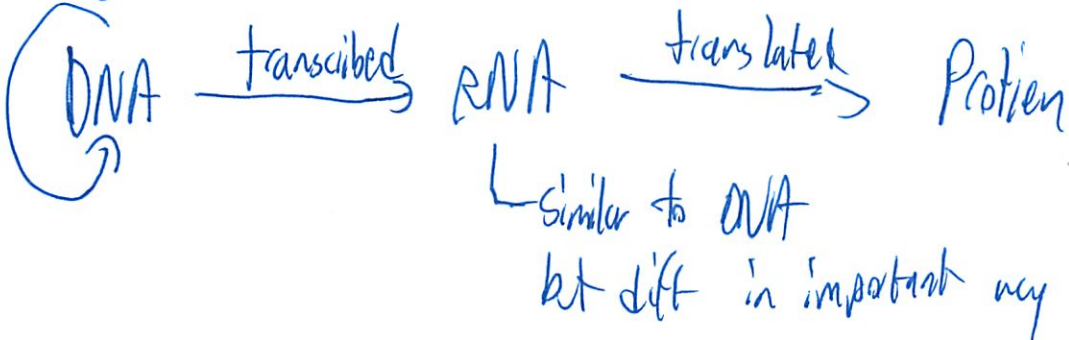 transcribed translated
DNA RNA Protien
similar to DNA
but diff in important way